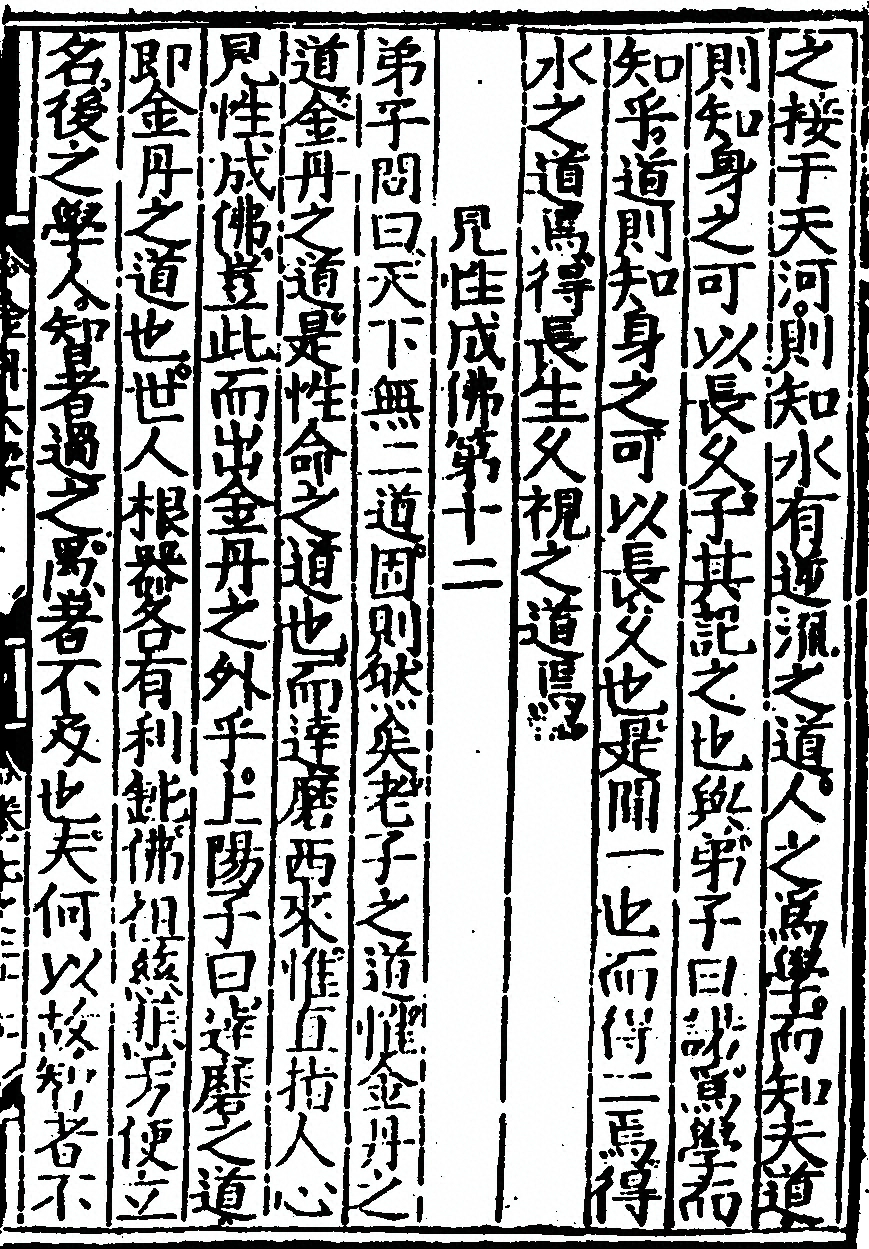 之接于天河則知水有逆流之道人之爲學而知夫道
則知身之可以長久子其記之也與弟子曰誠爲學而
知乎道則知身之可以長久也是聞一也而得二焉得
水之道焉得長生久視之道焉
見性成佛第十二
弟子問曰天下無二道因則然矣老子之道惟金丹之
道金丹之道是性命之道也而達磨西來惟直指人心
見性成佛豈此而出金丹之外乎上陽子曰達磨之道
即金丹之道也世人根器各有利鈍佛祖慈悲方便立
名後之學人智者過之愚者不及也夫何以故智者不
金丹大要